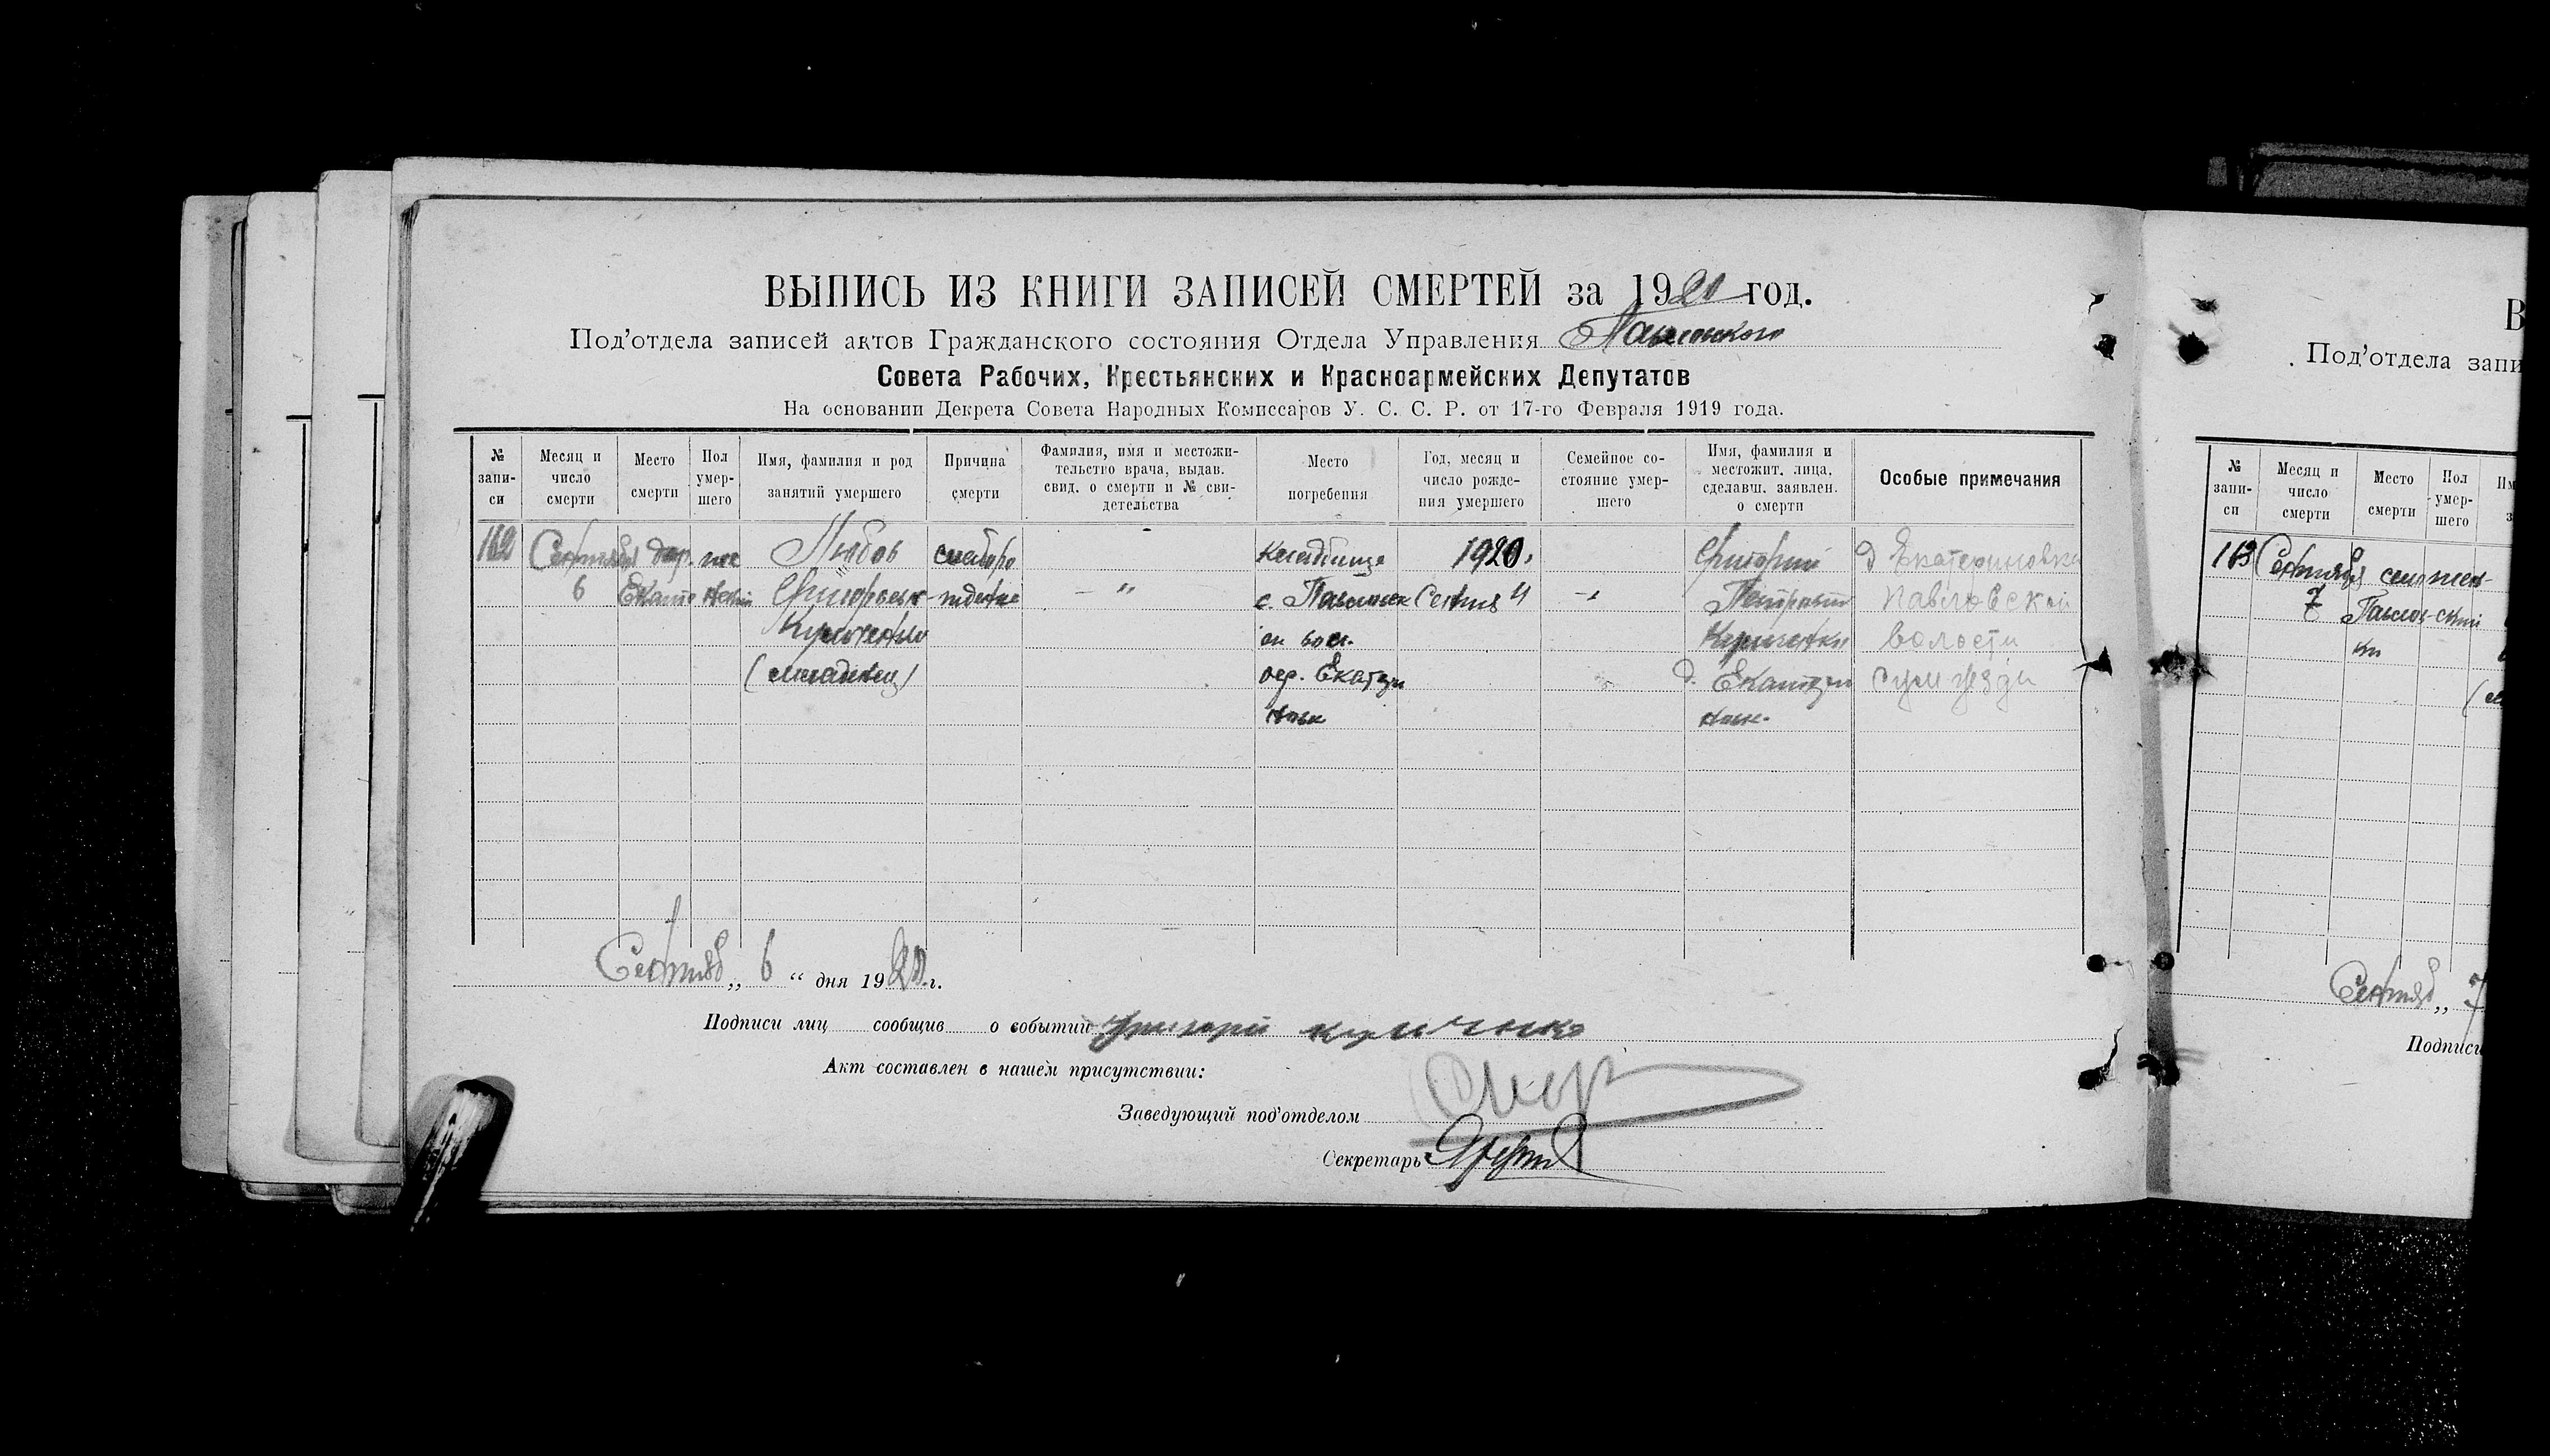 ВЫПИСЬ ИЗ КНИГИ ЗАПИСЕЙ СМЕРТЕЙ за 1920 год.
Под’отдела записей актов Гражданского состояния Отдела Управления Павловского
Совета Рабочих, Крестьянских и Красноармейских Депутатов
На основании Декрета Совета Народных Комиссаров У. С. С. Р. от 17-го Февраля 1919 года.
№ запи-си
Месяц и число смерти
Место смерти
Пол умер-шего
Имя, фамилия и род занятий умершего
Причина смерти
Фамилия, имя и местожи-тельство врача, выдав. свид. о смерти и № сви-детельства
Место погребения
Год, месяц и число рожде-ния умершего
Семейное со-стояние умер-шего
Имя, фамилия и местожит. лица, сделавш. заявлен. о смерти
Особые примечания
162
Сентября
6
дер.
Екате
Любов
Григорьевн
(младенец)
слаборо
ждение
— "
кладбище
с. Павловск
дер. Екатери
новк
1920.
Сентяб 4
Григорий
Петрович
д. Екатери
новк.
д Екатериновка
Павловской
волости
Сентяб „ 6 “ дня 1920 г.
Подписи лиц сообщив о событии Григорий
Акт составлен в нашем присутствии:
Заведующий под’отделом
Секретарь
В
Под’отдела запи
№ запи-си
Месяц и число смерти
Место смерти
Пол умер-шего
163
Сентября
7
село
Павлов
ки
жен-
ский
Сентяб „ 7
Подписи